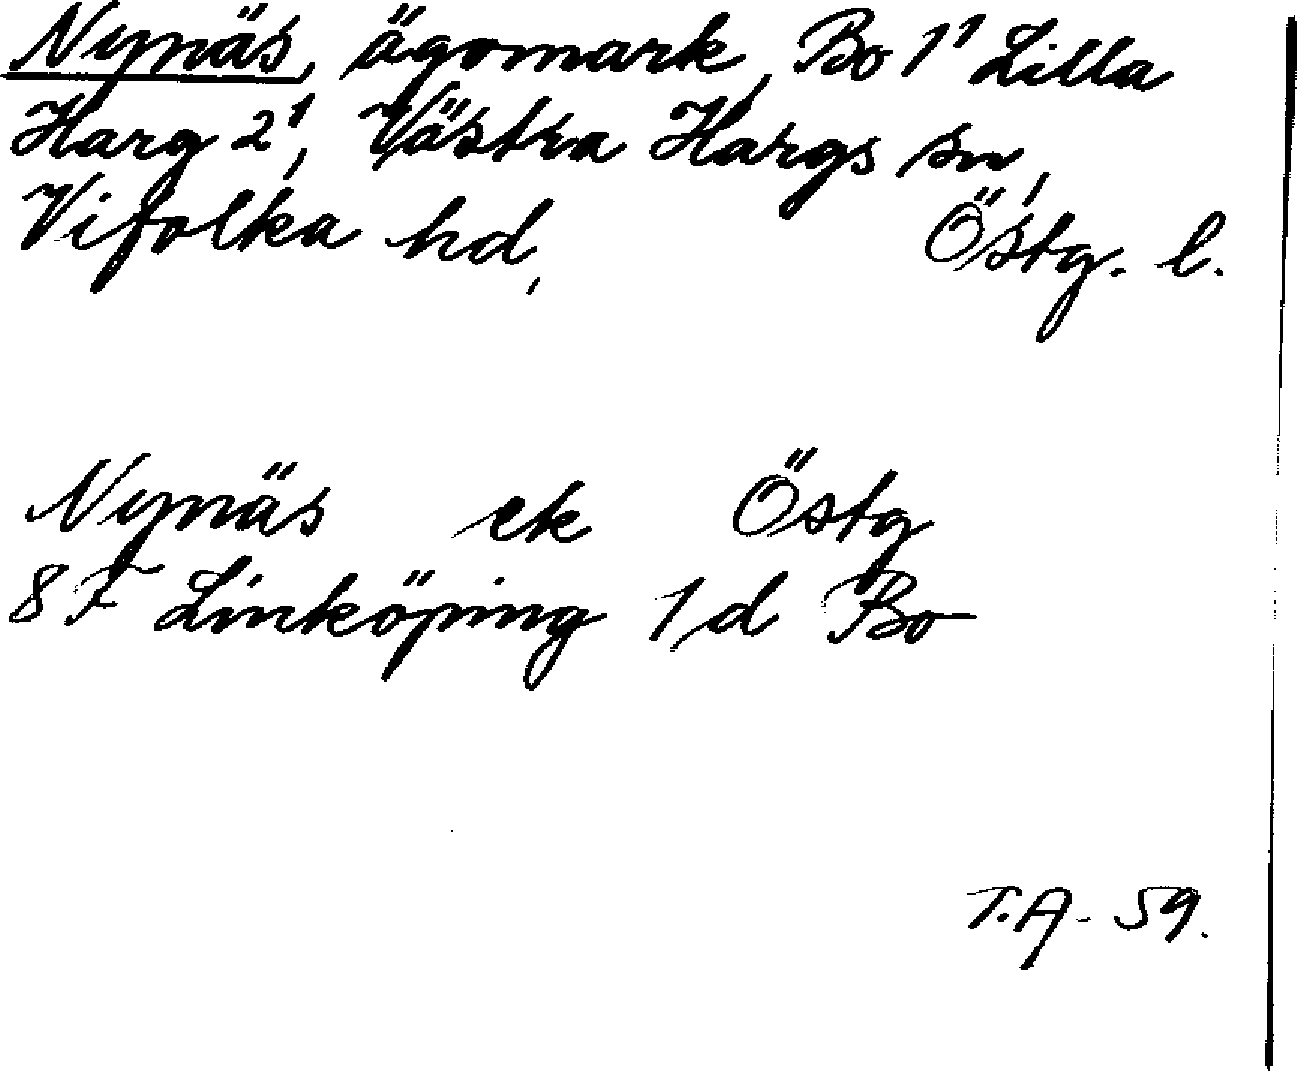 Nynäs, ägomark, Bo 1¹ Lilla
Harg 2¹, Västra Hargs sn,
Vifolka hd, Östg. l.
Nynäs ek Östg
8 F Linköping 1 d Bo
T.A. 59.